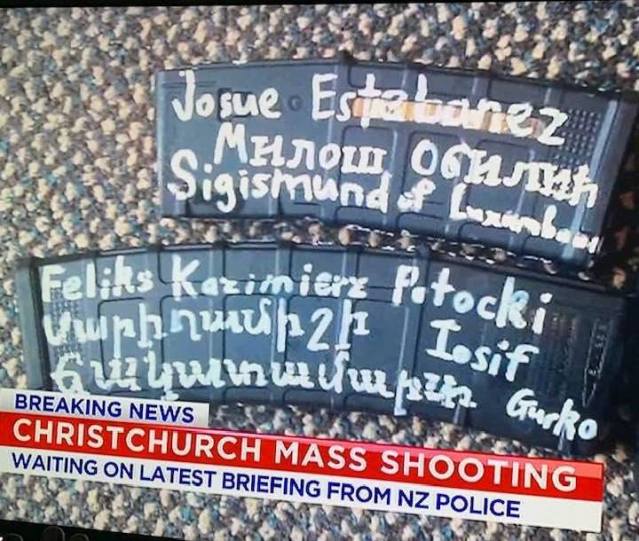 Josue Estebanez
Милош Обилић
Sigismund of Luxembourg
Feliks Kazimierz Potocki
Սարիղամիշի Iosif
Ճակատամարտի Gurko
BREAKING NEWS
CHRISTCHURCH MASS SHOOTING
WAITING ON LATEST BRIEFING FROM NZ POLICE